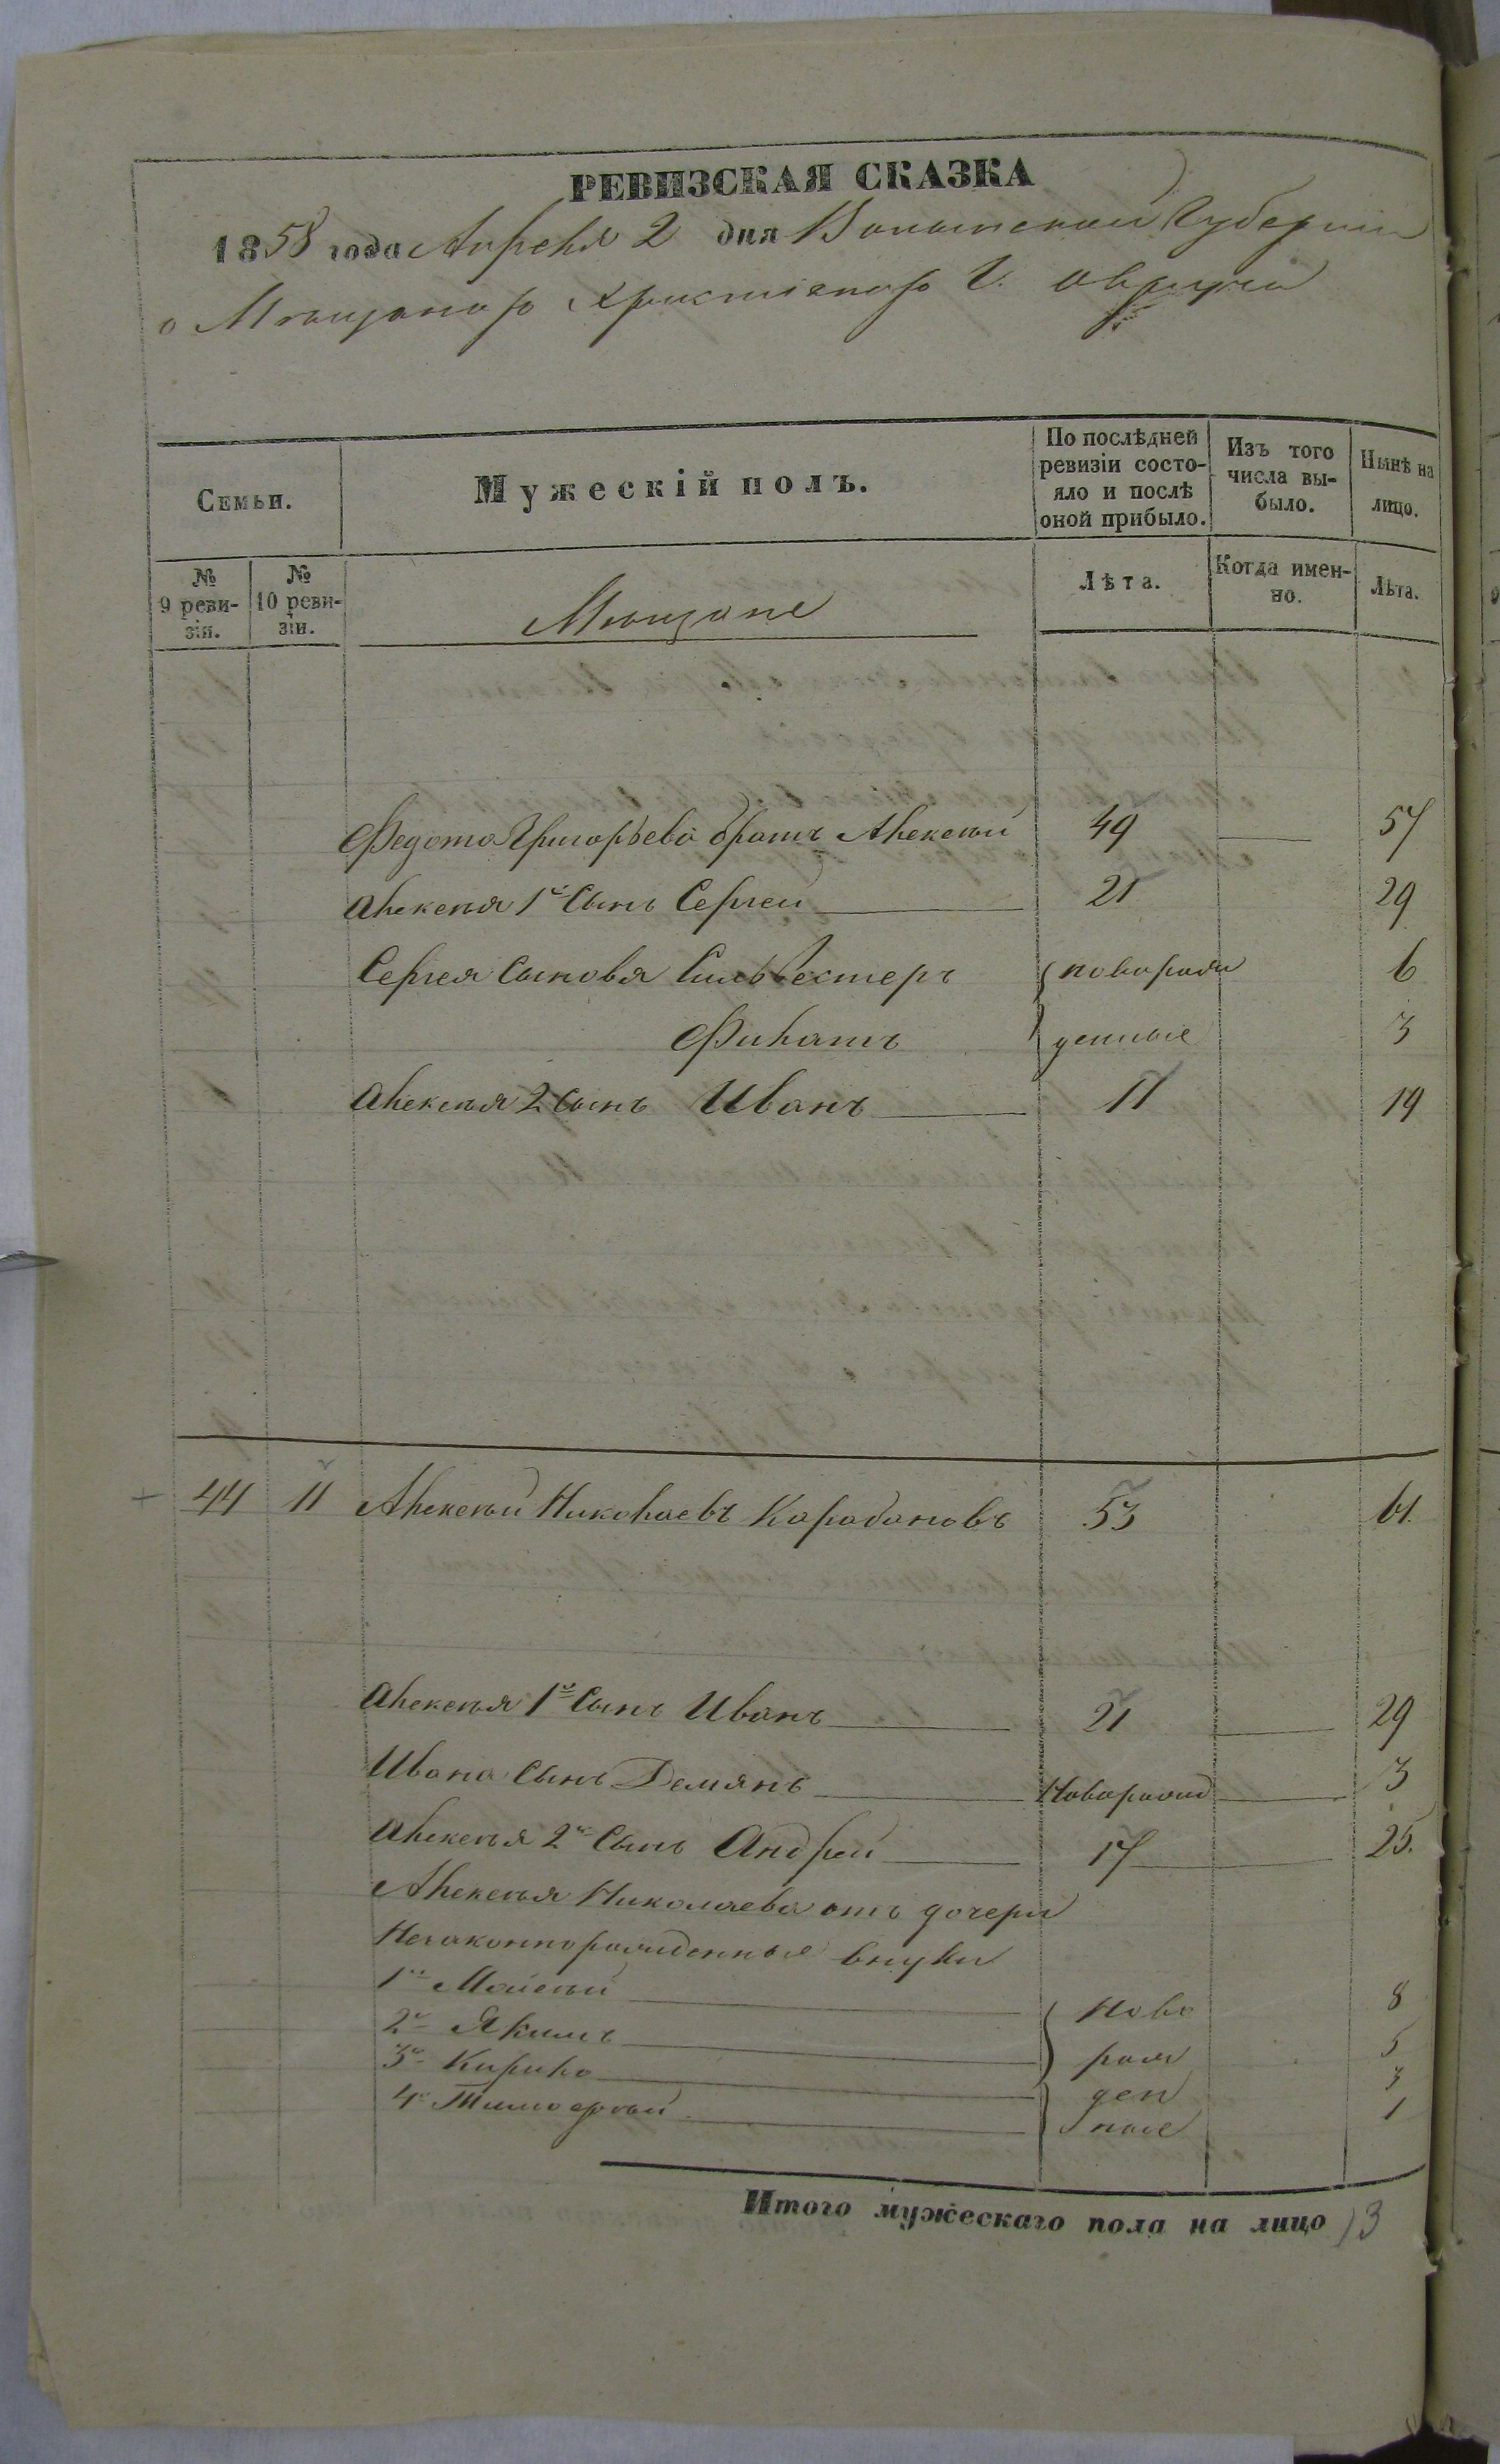 РЕВИЗСКАЯ СКАЗКА
1858 года Апреля 2 дня Волынской Губернии
о Мѣщанахъ Христіанахъ г. Овруча
Семьи.
Мужескій полъ.
По послѣдней ревизіи состо-
яло и послѣ
оной прибыло.
Изъ того
числа вы-
было.
Нынѣ на
лицо.
№
9 реви-
зіи.
№
10 реви-
зіи.
Мѣщане
Лѣта.
Когда имен-
но.
Лѣта.
Федота Григорьева братъ Алексѣй 49 57
Алексѣя 1й Сынъ Сергей 21 29
Сергея Сыновя Сильвестеръ новорож 6
Филатъ денные 3
Алексѣя 2 Сынъ Иванъ 11 19
44 11 Алексѣй Николаевъ Карабановъ 53 61.
Алексѣя 1й Сынъ Иванъ 21 29
Ивана Сынъ Демянъ Новорожд 3
Алексѣя 2й Сынъ Андрей 17 25.
Алексѣя Николаева отъ дочери
Незаконнорожденные внуки
1й Моисѣй ново 8
2й Якимъ рож 5
3й Кирило ден 3
4й Тимофѣй ные 1
Итого мужескаго пола на лицо 13